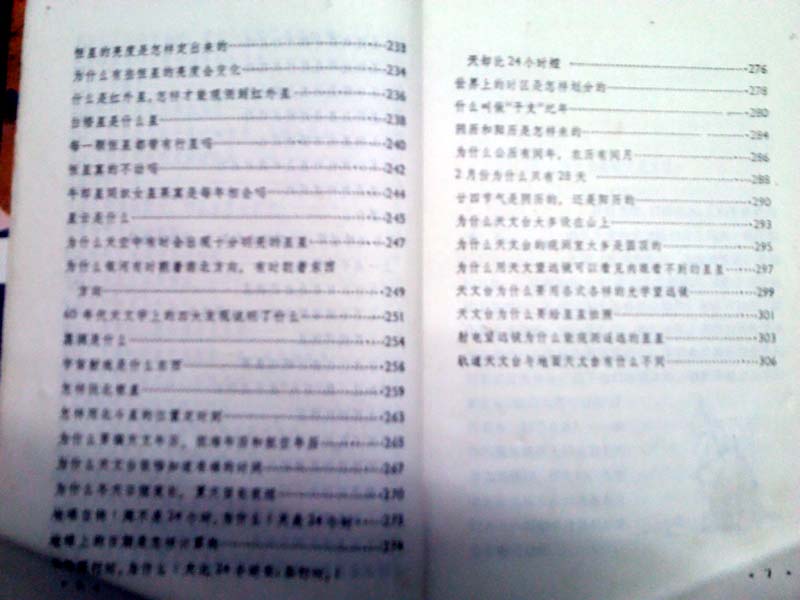 恒星的亮度是怎样定出来的 233
为什么有些恒星的亮度会变化 234
什么是红外星,怎样才能观测到红外星 236
白矮星是什么星 238
每一颗恒星都带有行星吗 240
恒星真的不动吗 242
牛郎星同织女星果真是每年相会吗 244
星云是什么 245
为什么天空中有时会出现十分明亮的星星 247
为什么银河有时朝着南北方向,有时朝着东西
方向 249
60年代天文学上的四大发现说明了什么 251
黑洞是什么 254
宇宙射线是什么东西 256
怎样找北极星 259
怎样用北斗星的位置定时刻 263
为什么要编天文年历、航海年历和航空年历 265
为什么天文台能够知道准确的时间 267
为什么冬天日短夜长,夏天日长夜短 270
地球自转1周不是24小时,为什么1天是24小时 273
地球上的日期是怎样计算的 274
为什么1天比24小时长
天却比24小时短 276
世界上的时区是怎样划分的 278
什么叫做“干支”纪年 280
阴历和阳历是怎样来的 284
为什么公历有闰年,农历有闰月 286
2月份为什么只有28天 288
廿四节气是阴历的,还是阳历的 290
为什么天文台大多设在山上 293
为什么天文台的观测室大多是圆顶的 295
为什么用天文望远镜可以看见肉眼看不到的星星 297
天文台为什么要用各式各样的光学望远镜 299
天文台为什么要给星星拍照 301
射电望远镜为什么能观测遥远的星星 303
轨道天文台与地面天文台有什么不同 306
7